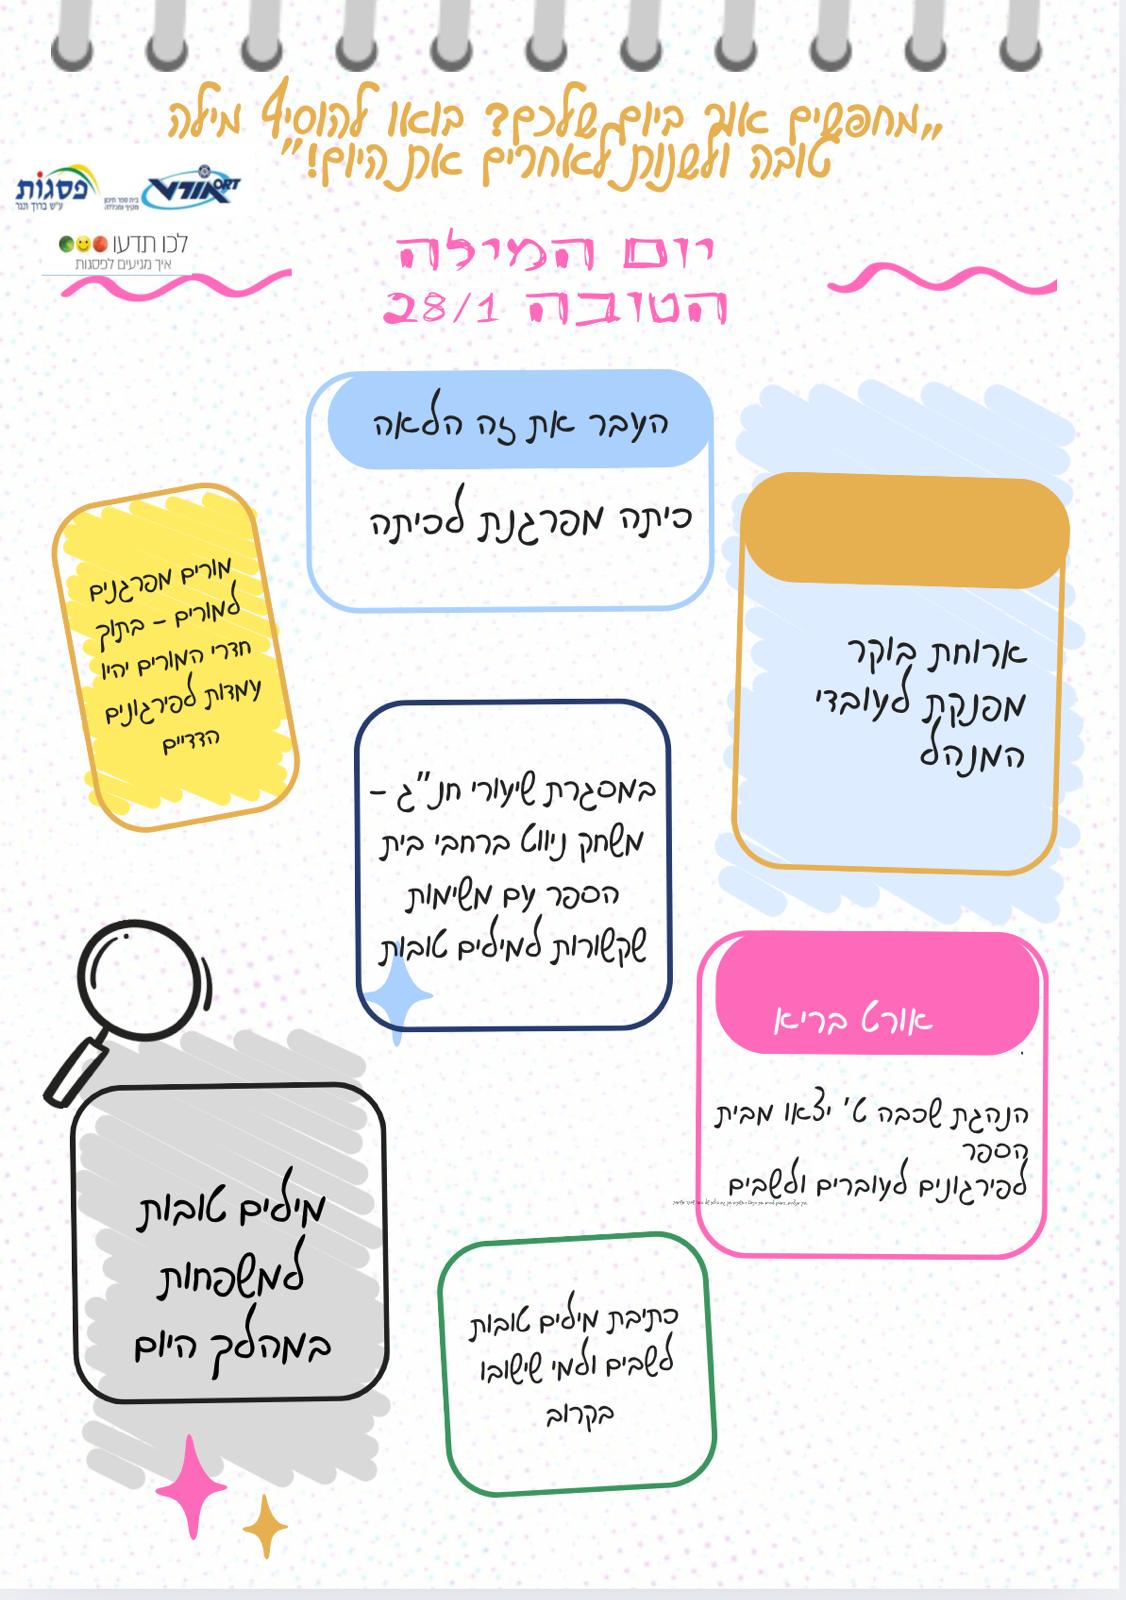 „מחפשים אור ביום שלכם? בואו להוסיף מילה
טובה ולשנות לאחרים את היום!"
פסגות
ע"ש ברוך ונגר
אורט ORT
בית ספר תיכון
מקיף ומכללה
לכו תדעו
איך מגיעים לפסגות
יום המילה
הטובה 28/1
העבר את זה הלאה
כיתה מפרגנת לכיתה
ארוחת בוקר
מפנקת לעובדי
המנהל
מורים מפרגנים
למורים – בתוך
חדרי המורים יהיו
עמדות לפירגונים
הדדיים
במסגרת שיעורי חנ"ג –
משחק ניווט ברחבי בית
הספר עם משימות
שקשורות למילים טובות
אורט בריא
הנהגת שכבה ט' יצאו מבית
הספר
לפירגונים לעוברים ולשבים
מילים טובות
למשפחות
במהלך היום
כתיבת מילים טובות
לשבים ולמי שישובו
בקרוב